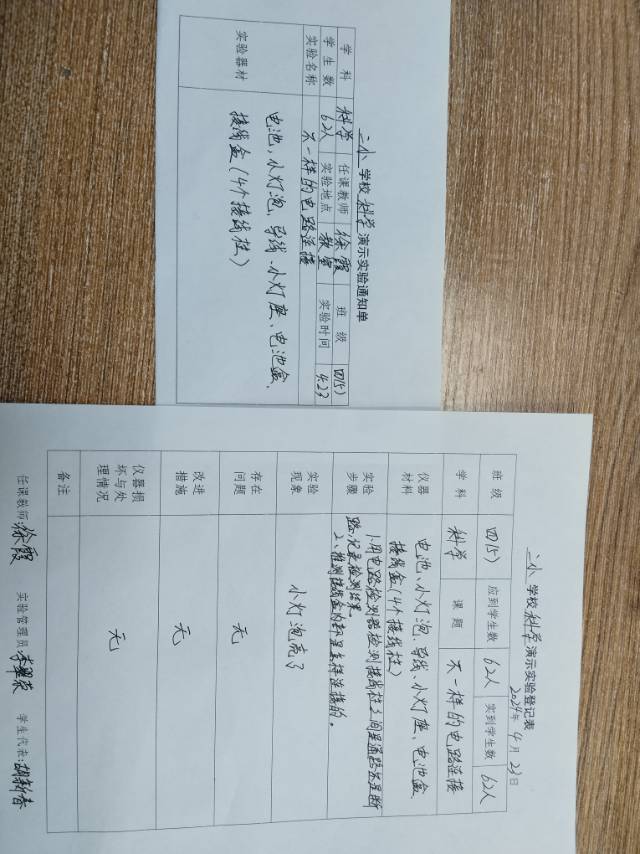 二小学校科学演示实验通知单
学科 科学 任课教师 徐霞 班级 四(5)
学生数 62人 实验地点 教室 实验时间 4.23
实验名称 不一样的电路连接
实验器材 电池,小灯泡、导线、小灯座、电池盒、
接线盒(4个接线柱)
二小学校科学演示实验登记表
2024年4月23日
班级 四(5) 应到学生数 62人 实到学生数 62人
学科 科学 课题 不一样的电路连接
仪器材料 电池、小灯泡、导线、小灯座、电池盒
接线盒(4个接线柱)
实验步骤 1.用电路检测器检测接线柱之间是通路还是断
路,记录检测结果。
2、推测接线盒内部是怎样连接的。
实验现象 小灯泡亮了
存在问题 无
改进措施 无
仪器损坏与处理情况 无
备注
任课教师:徐霞 实验管理员 学生代表:胡新春